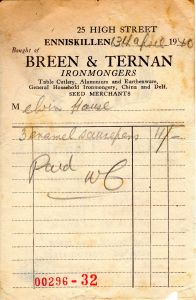 25 HIGH STREET
ENNISKILLEN, 13th April 1940
Bought of
BREEN & TERNAN
IRONMONGERS
Table Cutlery, Aluminium and Earthenware,
General Household Ironmongery, China and Delf.
SEED MERCHANTS
Melvin House
3 enamel saucepans 11/-
Paid
WC
00296-32